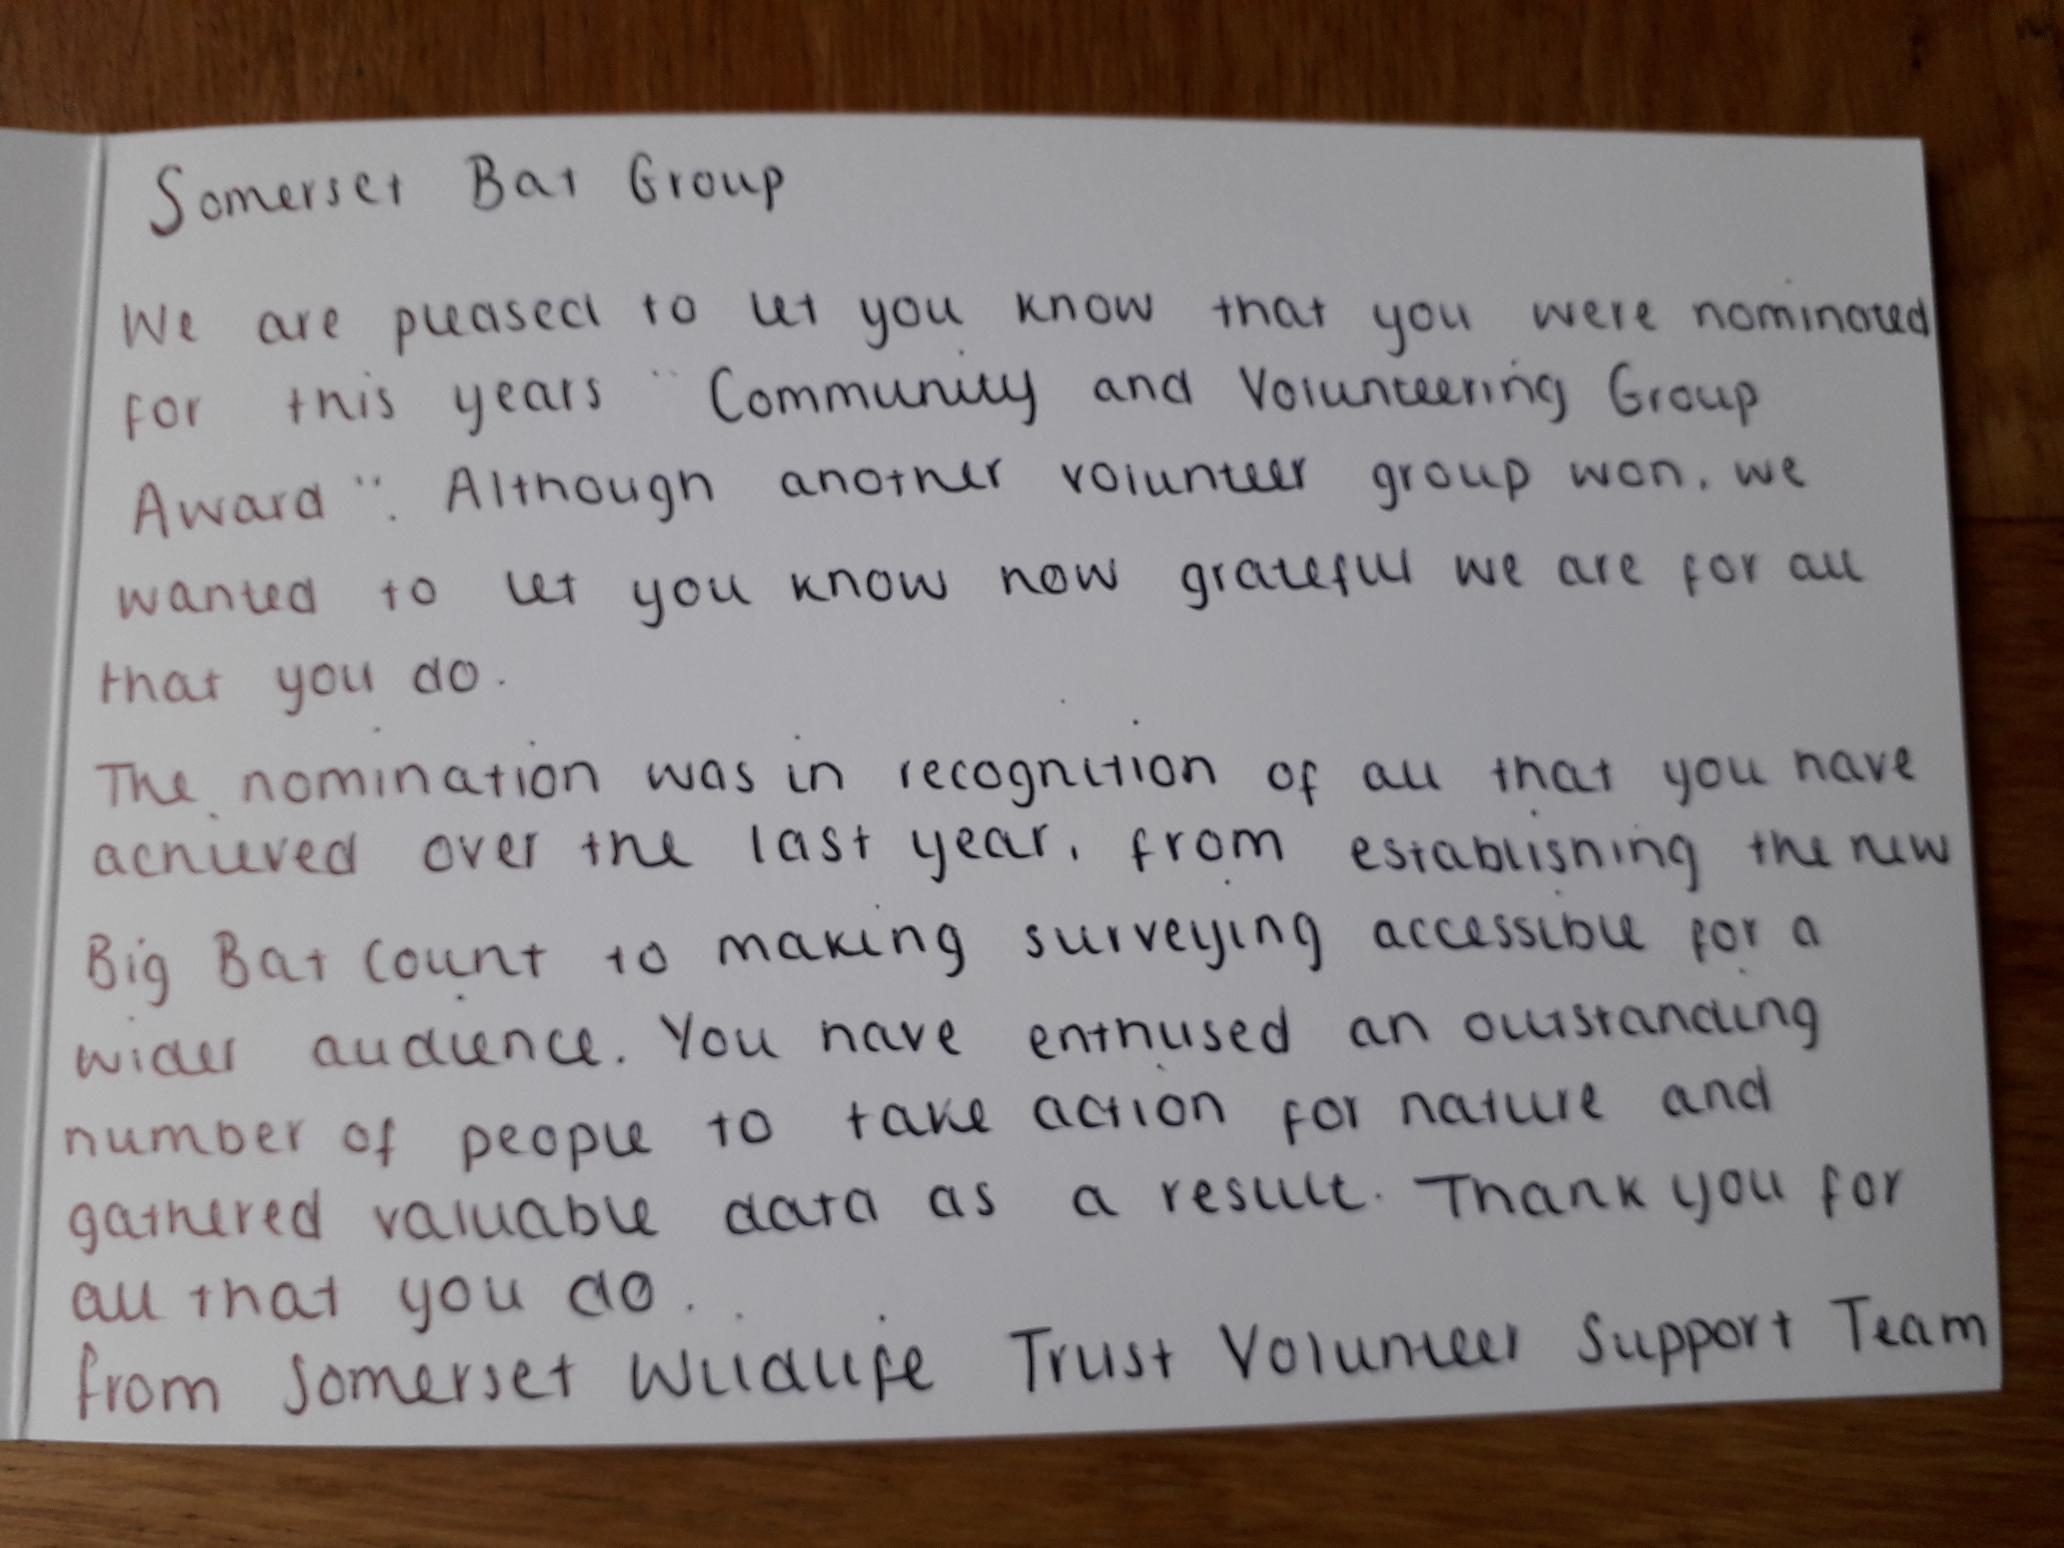 Somerset Bat Group
We are pleased to let you know that you were nominated
for this years "Community and Volunteering Group
Award". Although another volunteer group won, we
wanted to let you know how grateful we are for all
that you do.
The nomination was in recognition of all that you have
achieved over the last year, from establishing the new
Big Bat Count to making surveying accessible for a
wider audience. You have enthused an outstanding
number of people to take action for nature and
gathered valuable data as a result. Thank you for
all that you do.
from Somerset Wildlife Trust Volunteer Support Team